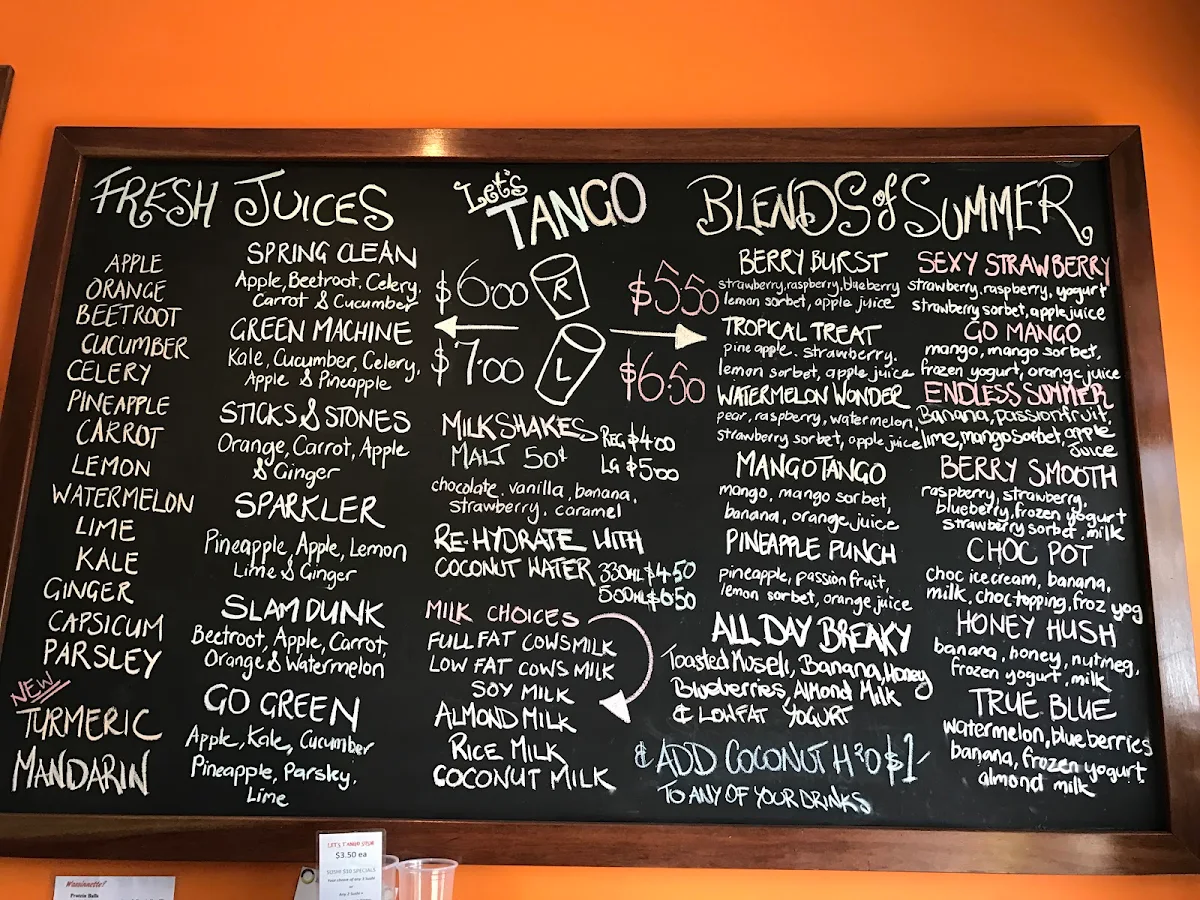 FRESH JUICES
APPLE
ORANGE
BEETROOT
CUCUMBER
CELERY
PINEAPPLE
CARROT
LEMON
WATERMELON
LIME
KALE
GINGER
CAPSICUM
PARSLEY
NEW
TURMERIC
MANDARIN
SPRING CLEAN
Apple, Beetroot, Celery,
Carrot & Cucumber
GREEN MACHINE
Kale, Cucumber, Celery,
Apple & Pineapple
STICKS & STONES
Orange, Carrot, Apple
& Ginger
SPARKLER
Pineapple, Apple, Lemon
Lime & Ginger
SLAM DUNK
Beetroot, Apple, Carrot,
Orange & Watermelon
GO GREEN
Apple, Kale, Cucumber
Pineapple, Parsley,
Lime
Let's
TANGO
$6.00 R $5.50
$7.00 L $6.50
MILKSHAKES REG $4.00
MALT 50¢ LG $5.00
chocolate, vanilla, banana,
strawberry, caramel
RE-HYDRATE WITH
COCONUT WATER 330ML $4.50
500ML $6.50
MILK CHOICES
FULL FAT COWS MILK
LOW FAT COWS MILK
SOY MILK
ALMOND MILK
RICE MILK
COCONUT MILK
BLENDS of SUMMER
BERRY BURST
strawberry, raspberry, blueberry
lemon sorbet, apple juice
TROPICAL TREAT
pineapple. strawberry.
lemon sorbet, apple juice
WATERMELON WONDER
pear, raspberry, watermelon,
strawberry sorbet, apple juice
MANGO TANGO
mango, mango sorbet,
banana, orange juice
PINEAPPLE PUNCH
pineapple, passionfruit,
lemon sorbet, orange juice
ALL DAY BREAKY
Toasted Museli, Banana, Honey
Blueberries, Almond Milk
& LOW FAT YOGURT
& ADD COCONUT H2O $1-
TO ANY OF YOUR DRINKS
SEXY STRAWBERRY
strawberry, raspberry, yogurt
strawberry sorbet, apple juice
GO MANGO
mango, mango sorbet,
frozen yogurt, orange juice
ENDLESS SUMMER
Banana, passionfruit,
lime, mango sorbet, apple
juice
BERRY SMOOTH
raspberry, strawberry,
blueberry, frozen yogurt
strawberry sorbet, milk
CHOC POT
choc ice cream, banana,
milk, choc topping, froz yog
HONEY HUSH
banana, honey, nutmeg,
frozen yogurt, milk
TRUE BLUE
watermelon, blueberries
banana, frozen yogurt
almond milk
LET'S TANGO
$3.50 ea
SUSHI $10 SPECIALS
Protein Balls